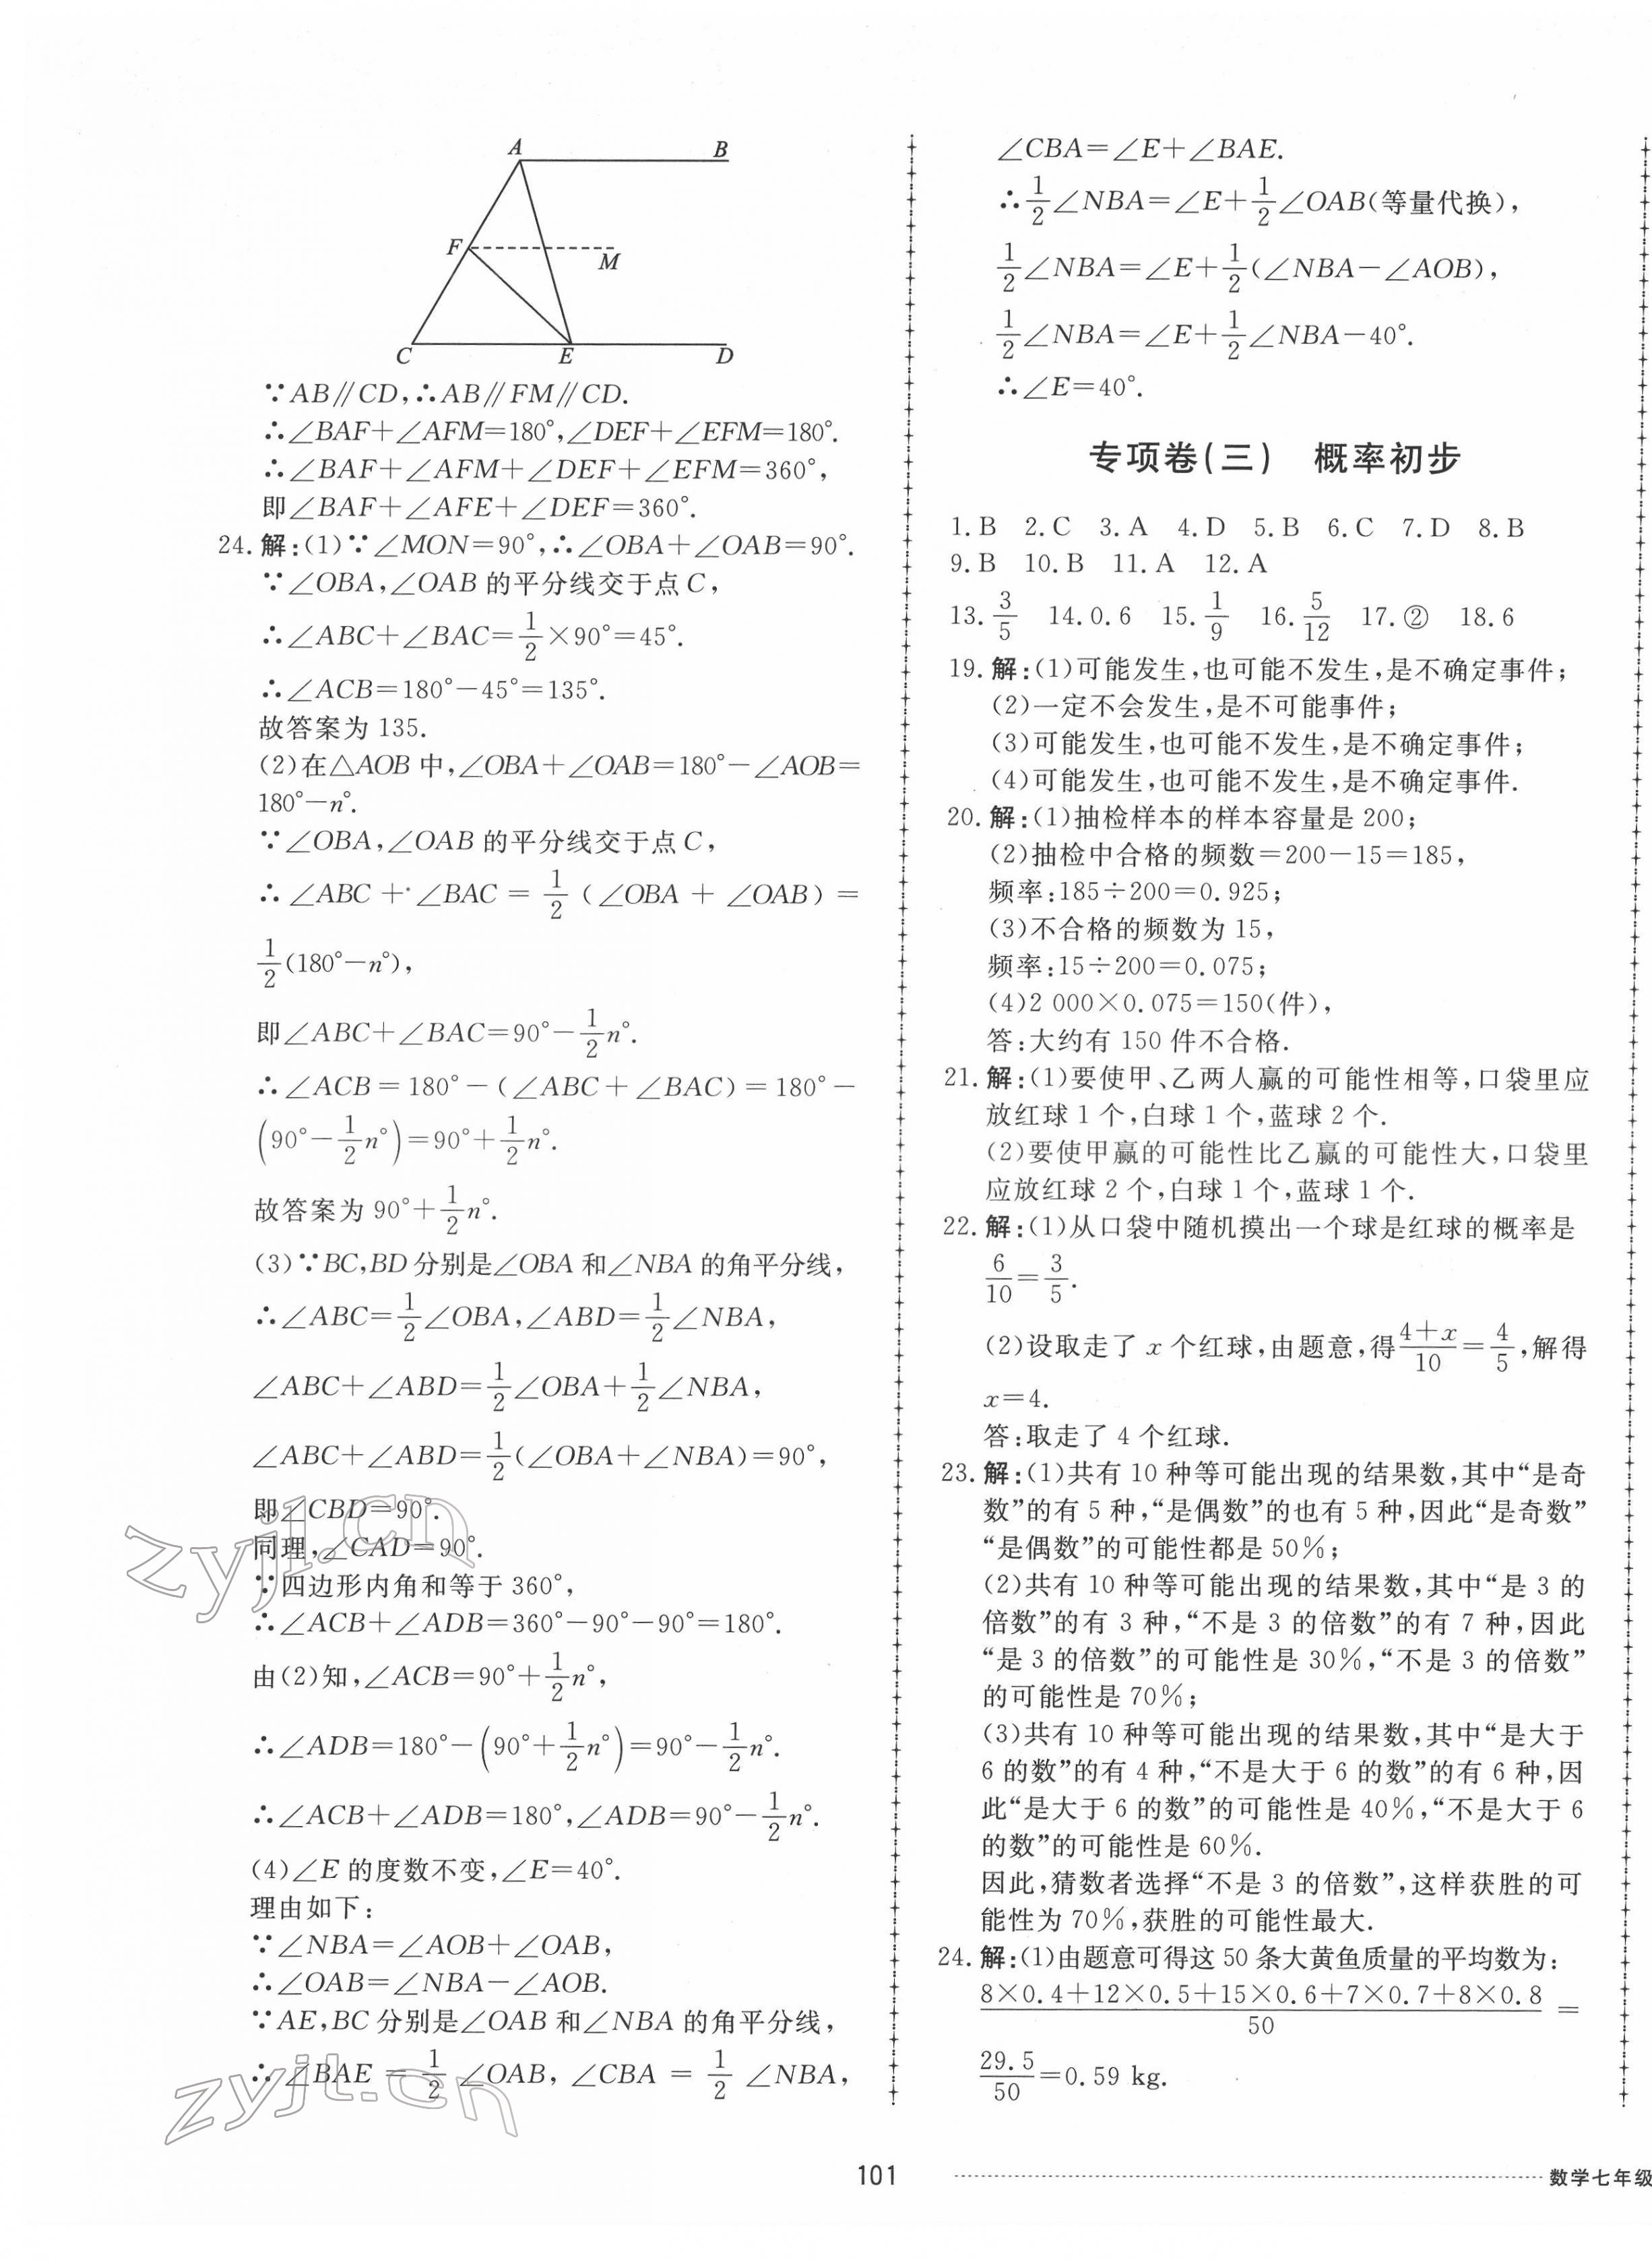 A
B
F
M
C
E
D
∵AB∥CD,∴AB∥FM∥CD.
∴∠BAF+∠AFM=180°,∠DEF+∠EFM=180°.
∴∠BAF+∠AFM+∠DEF+∠EFM=360°,
即∠BAF+∠AFE+∠DEF=360°.
24.解:(1)∵∠MON=90°,∴∠OBA+∠OAB=90°.
∵∠OBA,∠OAB的平分线交于点C,
∴∠ABC+∠BAC=1/2×90°=45°.
∴∠ACB=180°-45°=135°.
故答案为135.
(2)在△AOB中,∠OBA+∠OAB=180°-∠AOB=
180°-n°.
∵∠OBA,∠OAB的平分线交于点C,
∴∠ABC+∠BAC=1/2(∠OBA+∠OAB)=
1/2(180°-n°),
即∠ABC+∠BAC=90°-1/2n°.
∴∠ACB=180°-(∠ABC+∠BAC)=180°-
(90°-1/2n°)=90°+1/2n°.
故答案为90°+1/2n°.
(3)∵BC,BD分别是∠OBA和∠NBA的角平分线,
∴∠ABC=1/2∠OBA,∠ABD=1/2∠NBA,
∠ABC+∠ABD=1/2∠OBA+1/2∠NBA,
∠ABC+∠ABD=1/2(∠OBA+∠NBA)=90°,
即∠CBD=90°.
同理,∠CAD=90°.
∵四边形内角和等于360°,
∴∠ACB+∠ADB=360°-90°-90°=180°.
由(2)知,∠ACB=90°+1/2n°,
∴∠ADB=180°-(90°+1/2n°)=90°-1/2n°.
∴∠ACB+∠ADB=180°,∠ADB=90°-1/2n°.
(4)∠E的度数不变,∠E=40°.
理由如下:
∵∠NBA=∠AOB+∠OAB,
∴∠OAB=∠NBA-∠AOB.
∵AE,BC分别是∠OAB和∠NBA的角平分线,
∴∠BAE=1/2∠OAB,∠CBA=1/2∠NBA,
∠CBA=∠E+∠BAE.
∴1/2∠NBA=∠E+1/2∠OAB(等量代换),
1/2∠NBA=∠E+1/2(∠NBA-∠AOB),
1/2∠NBA=∠E+1/2∠NBA-40°.
∴∠E=40°.
专项卷(三) 概率初步
1.B 2.C 3.A 4.D 5.B 6.C 7.D 8.B
9.B 10.B 11.A 12.A
13.3/5 14.0.6 15.1/9 16.5/12 17.② 18.6
19.解:(1)可能发生,也可能不发生,是不确定事件;
(2)一定不会发生,是不可能事件;
(3)可能发生,也可能不发生,是不确定事件;
(4)可能发生,也可能不发生,是不确定事件.
20.解:(1)抽检样本的样本容量是200;
(2)抽检中合格的频数=200-15=185,
频率:185÷200=0.925;
(3)不合格的频数为15,
频率:15÷200=0.075;
(4)2 000×0.075=150(件),
答:大约有150件不合格.
21.解:(1)要使甲、乙两人赢的可能性相等,口袋里应
放红球1个,白球1个,蓝球2个.
(2)要使甲赢的可能性比乙赢的可能性大,口袋里
应放红球2个,白球1个,蓝球1个.
22.解:(1)从口袋中随机摸出一个球是红球的概率是
6/10=3/5.
(2)设取走了x个红球,由题意,得(4+x)/10=4/5,解得
x=4.
答:取走了4个红球.
23.解:(1)共有10种等可能出现的结果数,其中“是奇
数”的有5种,“是偶数”的也有5种,因此“是奇数”
“是偶数”的可能性都是50%;
(2)共有10种等可能出现的结果数,其中“是3的
倍数”的有3种,“不是3的倍数”的有7种,因此
“是3的倍数”的可能性是30%,“不是3的倍数”
的可能性是70%;
(3)共有10种等可能出现的结果数,其中“是大于
6的数”的有4种,“不是大于6的数”的有6种,因
此“是大于6的数”的可能性是40%,“不是大于6
的数”的可能性是60%.
因此,猜数者选择“不是3的倍数”,这样获胜的可
能性为70%,获胜的可能性最大.
24.解:(1)由题意可得这50条大黄鱼质量的平均数为:
(8×0.4+12×0.5+15×0.6+7×0.7+8×0.8)/50=
29.5/50=0.59 kg.
101
数学七年级
zyjl.cn
zyjl.cn